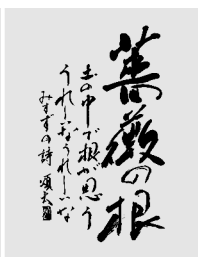 薔薇の根
土の中で根が思う
うれしいな うれしいな
みすずの詩 頌夫